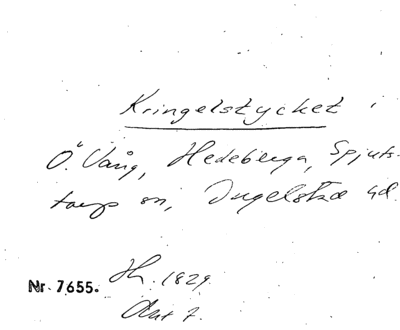 Kringelstycket
Ö. Vång, Hedeberga, Spjuts-
torp sn, Ingelstad hd.
Nr 7655. Hh. 1829
Akt 7.